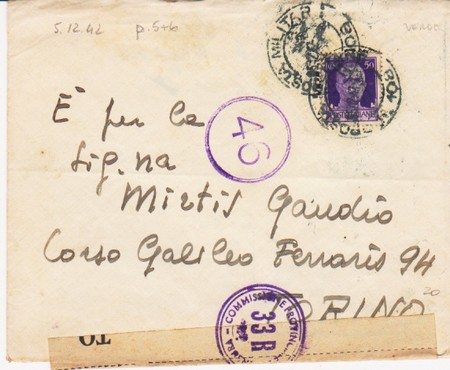 5.12.42 p.5+6 VERDE
POSTA MILITARE
50 50
È per la
46
Sig.na
Mirtis Gaudio
Corso Galileo Ferraris 94
TORINO
20
COMMISSIONE PROVINC
33R
TO